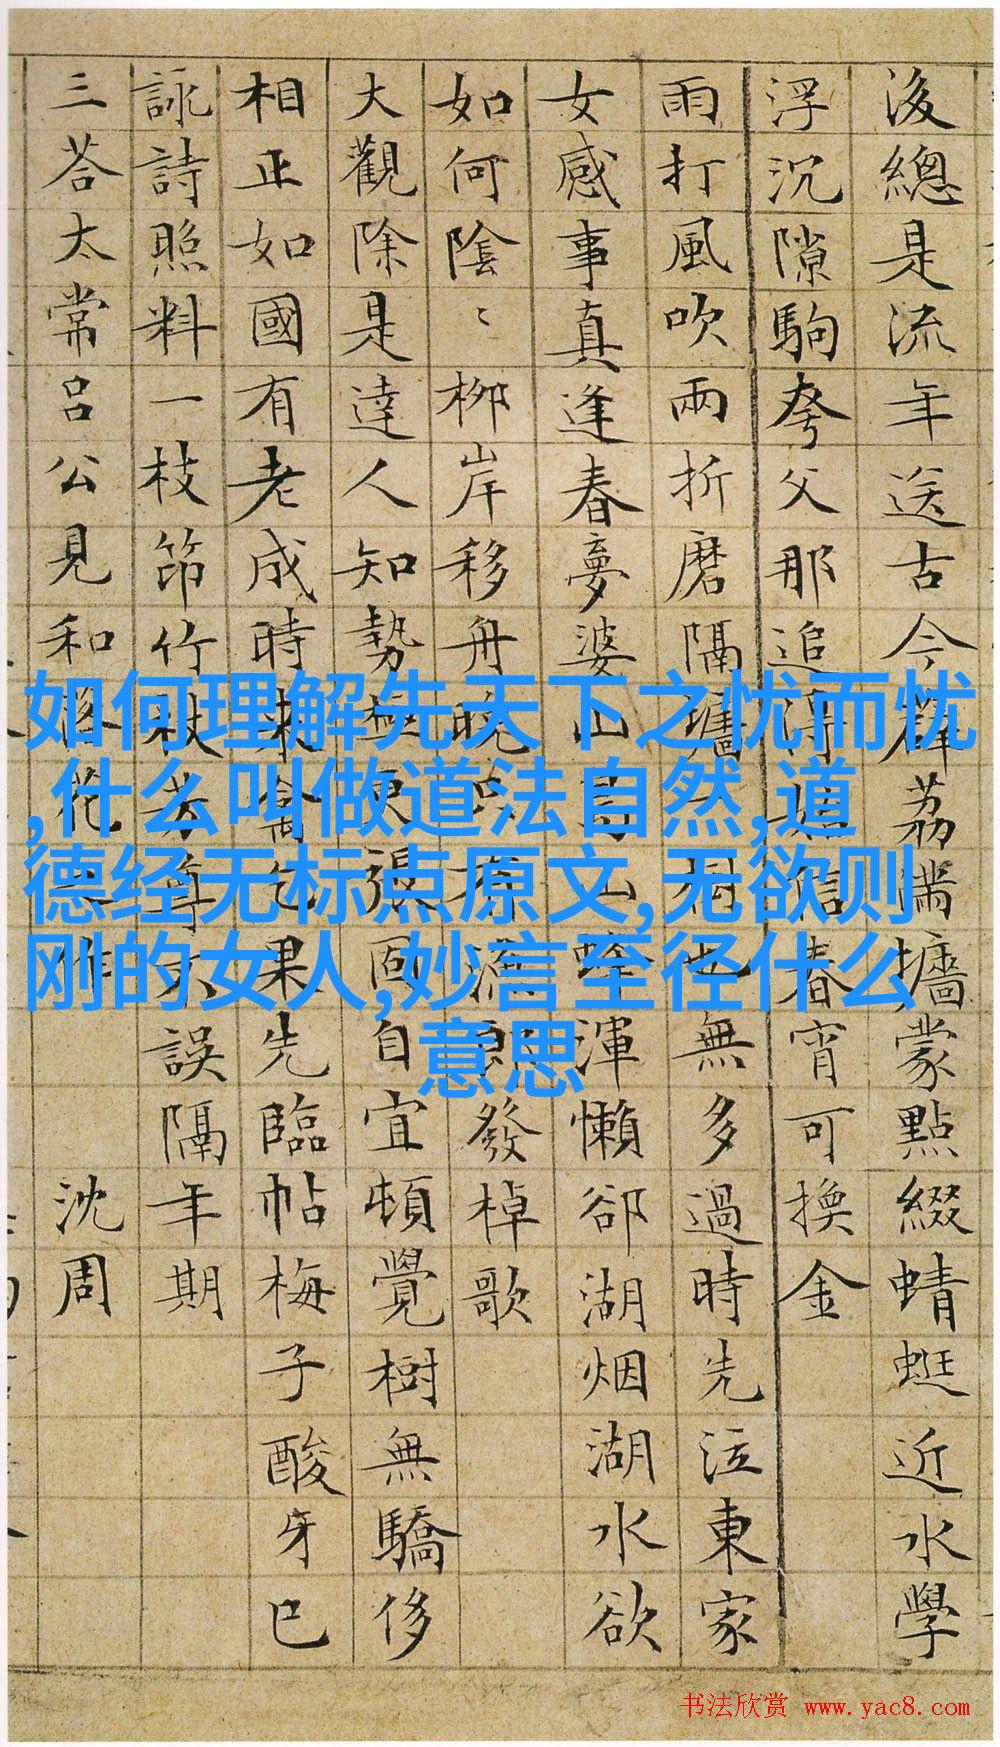 如何理解先天下之忧而忧
,什么叫做道法自然,道
德经无标点原文,无欲则
刚的女人,妙言至径什么
意思
後總是流年送古今群荔滿墻蒙點綴蜻蜓近水學
浮沉隙駒夸父那追得信春宵可換金
雨打風吹兩折磨隔墻樹也無多過時先泣東家
女感事真逢春夢婆山山渾懶卻湖烟湖水欲
如何陰〻柳岸移舟晚有漁郎發棹歌
大觀除是達人知勢極更張固自宜頓覺樹無驕侈
相正如國有老成時禽包果先臨帖梅子酸牙已
詠詩照料一枝筇竹杖芳尊誤隔年期
三荅太常呂公見和落花之作 沈周
书法欣赏 www.yac8.com